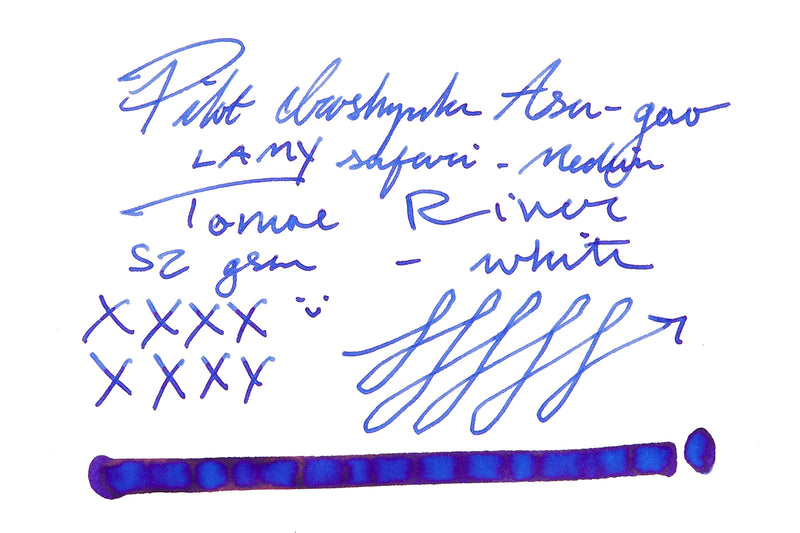 Pilot iroshizuku Asa-gao
LAMY safari - Medium
Tomoe River
52 gsm - white
XXXX
XXXX